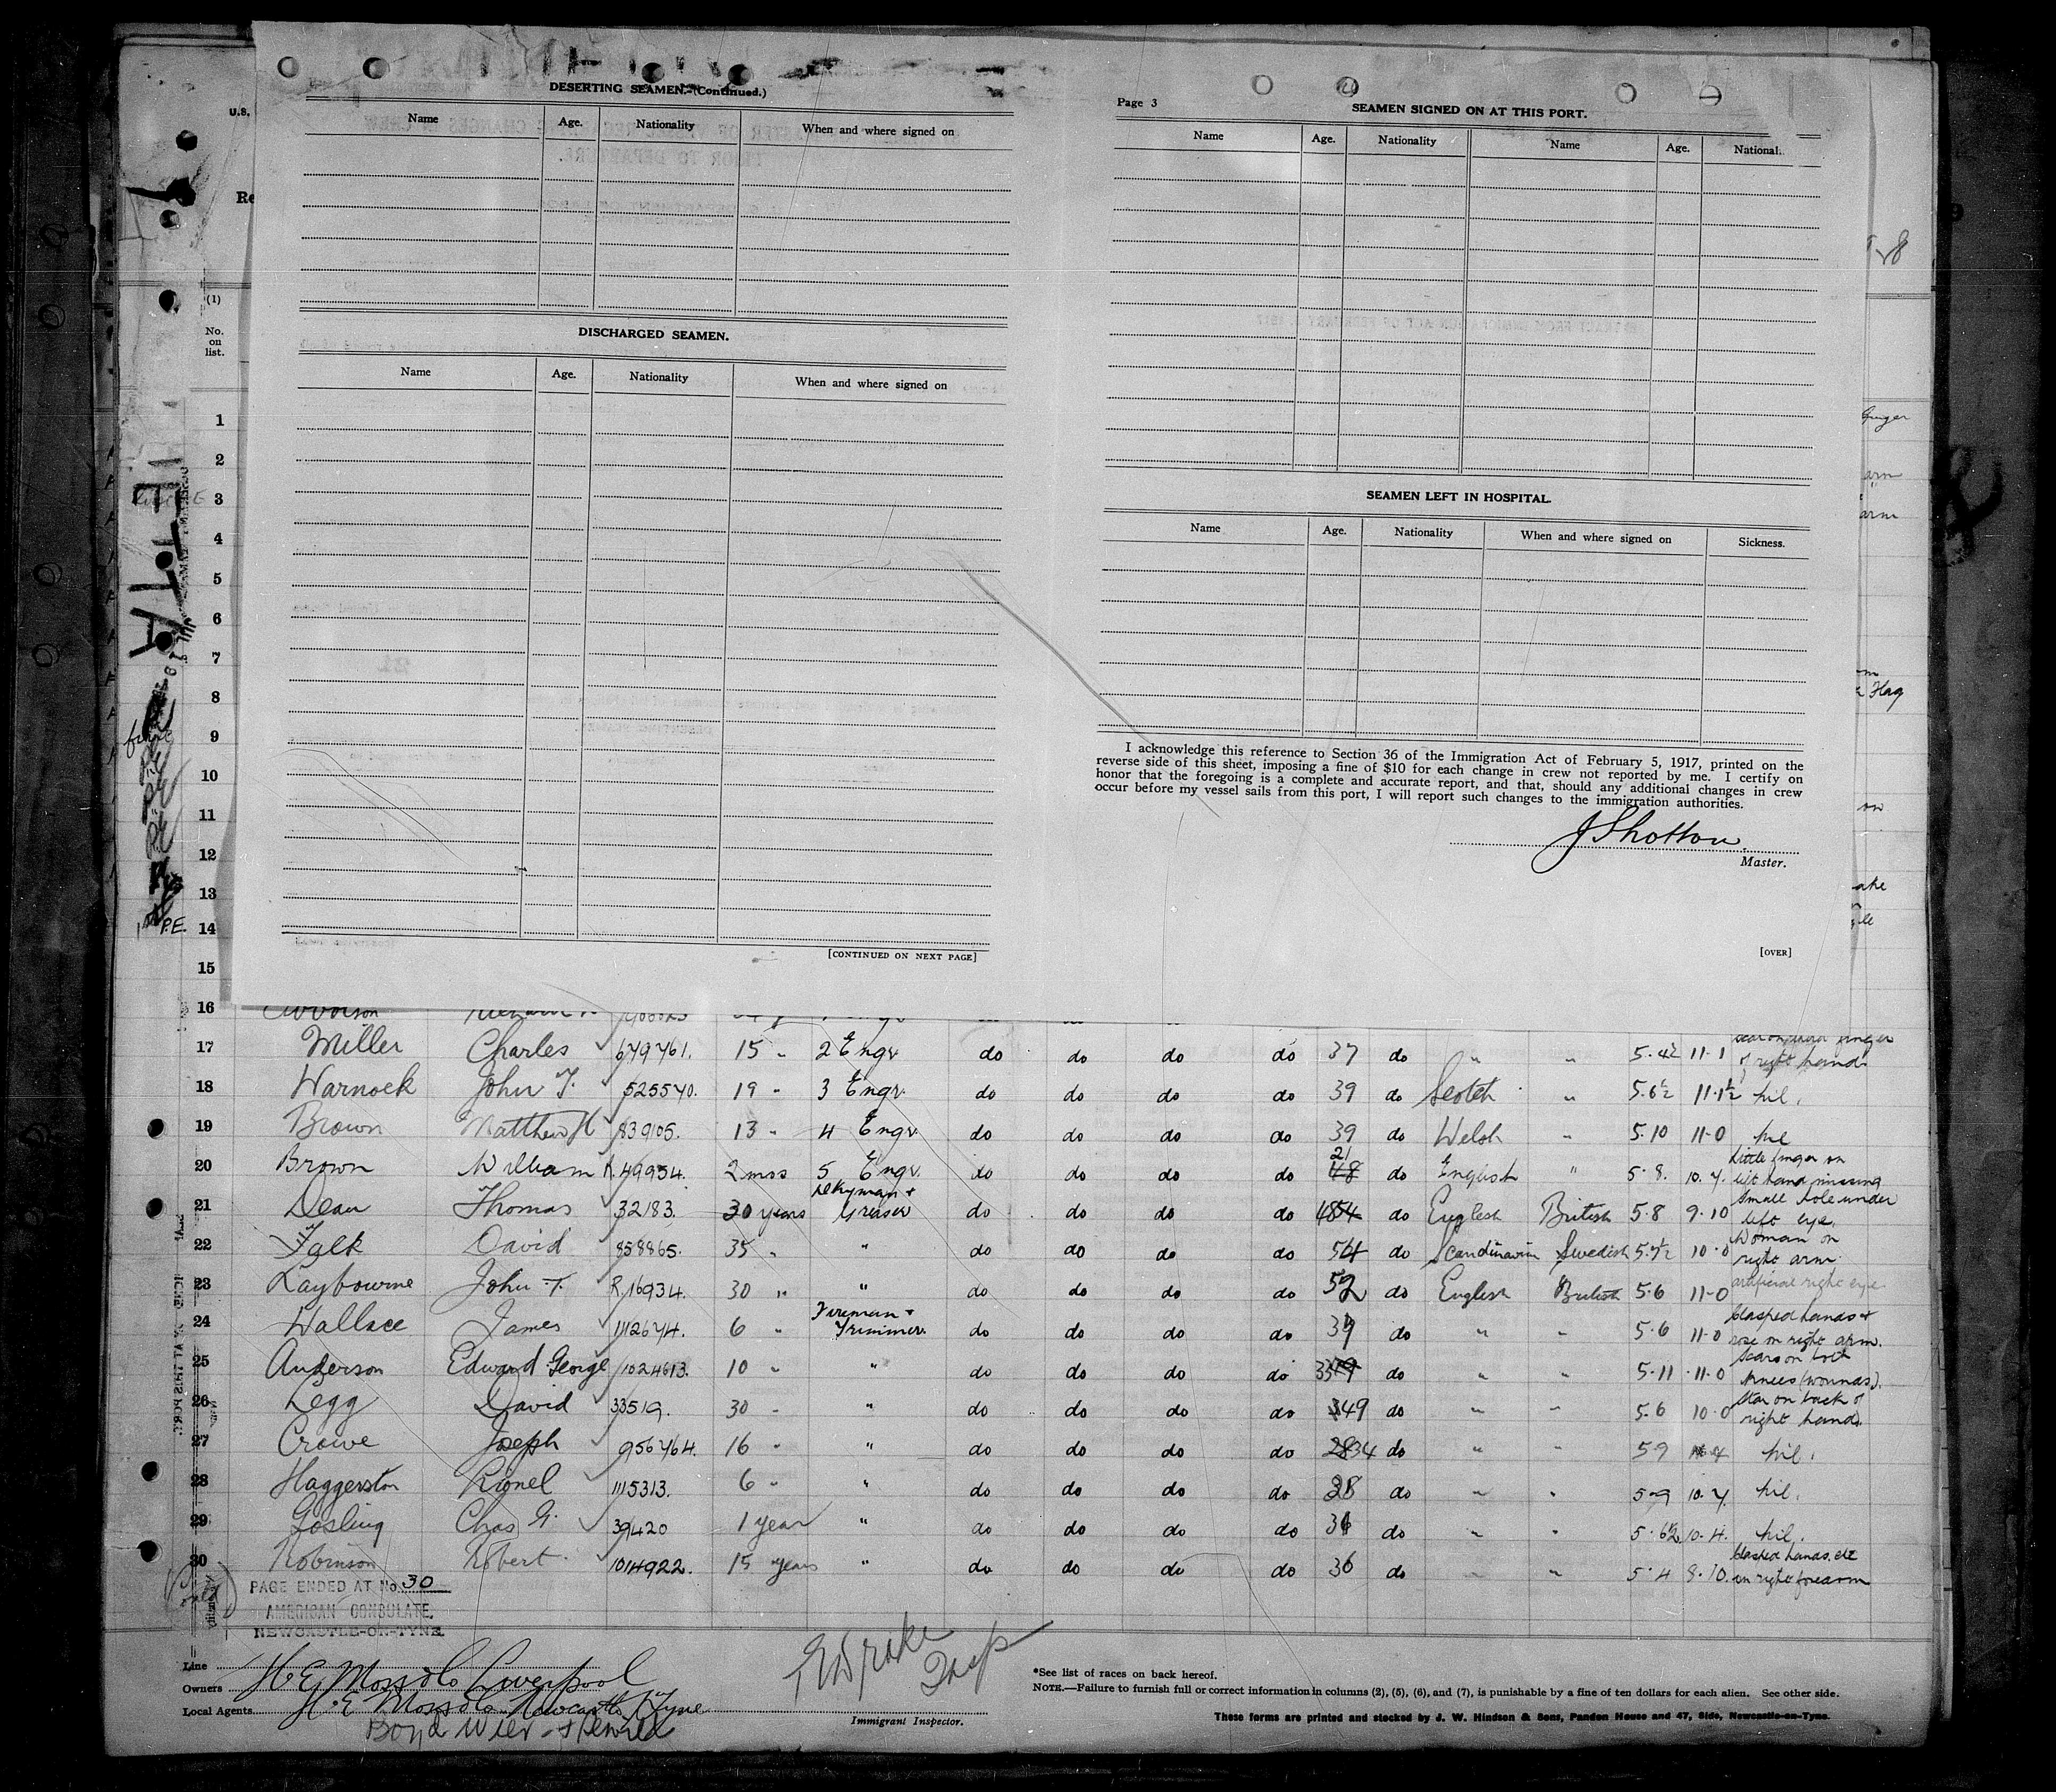 DESERTING SEAMEN.—(Continued.)
Name Age. Nationality When and where signed on
DISCHARGED SEAMEN.
Name Age. Nationality When and where signed on
[CONTINUED ON NEXT PAGE]
Page 3
SEAMEN SIGNED ON AT THIS PORT.
Name Age. Nationality Name Age. National.
SEAMEN LEFT IN HOSPITAL.
Name Age. Nationality When and where signed on Sickness.
I acknowledge this reference to Section 36 of the Immigration Act of February 5, 1917, printed on the
reverse side of this sheet, imposing a fine of $10 for each change in crew not reported by me. I certify on
honor that the foregoing is a complete and accurate report, and that, should any additional changes in crew
occur before my vessel sails from this port, I will report such changes to the immigration authorities.
J Shotton
Master.
[OVER]
U.S.
Re
(1)
No.
on
list.
1
2
3
4
5
6
7
8
9
10
11
12
13
14
P.E.
15
16
17 Miller Charles 679761. 15 " 2 Engr do do do do 37 do " " 5.4½ 11.1
of right hand
18 Warnock John T. 525540. 19 " 3 Engr. do do do do 39 do Scotch " 5.6½ 11.1½ nil.
19 Brown Matthew H 839105. 13 " 4 Engr do do do do 39 do Welsh " 5.10 11.0 nil
20 Brown William R.49954. 2 mos 5 Engr. do do do do 21 48 do English " 5.8. 10.7. little finger on
left hand missing
21 Dean Thomas 32183. 30 years Dkyman + Greaser do do do do 48 54 do English British 5.8 9.10 small hole under
left eye.
22 Falk David 858865. 35 " " do do do do 54 do Scandinavian Swedish 5.7½ 10.0 Woman on
right arm
23 Laybourne John T. R.16934. 30 " " do do do do 52 do English British 5.6 11.0 artificial right eye
24 Wallace James 1112674. 6 " Fireman + Trimmer. do do do do do " " 5.6 11.0 clasped hands +
rose on right arm.
25 Anderson Edward George 1024613. 10 " " do do do do do " " 5.11 11.0 Scars on both
knees (wounds).
26 Legg David 33519. 30 " " do do do do 49 do " " 5.6 10.0 Star on back of
right hand.
27 Crowe Joseph 956764. 16 " " do do do do 28 34 do " " 5.9 nil.
28 Haggerston Lionel 1115313. 6 " " do do do do 28 do " " 5.9 10.7. nil.
29 Gosling Chas G. 39420 1 year " do do do do do " " 5.6½ 10.4. nil.
30 Robinson Robert 1014922. 15 years " do do do do 36 do " " 5.4 9.10. clasped hands. etc
on right forearm
PAGE ENDED AT No. 30
AMERICAN CONSULATE,
NEWCASTLE-ON-TYNE.
Line
Owners H E Moss & Co Liverpool
Local Agents H. E Moss & Co Newcastle Tyne
Boyd Wier & Sewell
Immigrant Inspector.
*See list of races on back hereof.
NOTE.—Failure to furnish full or correct information in columns (2), (5), (6), and (7), is punishable by a fine of ten dollars for each alien. See other side.
These forms are printed and stocked by J. W. Hindson & Sons, Pandon House and 47, Side, Newcastle-on-Tyne.